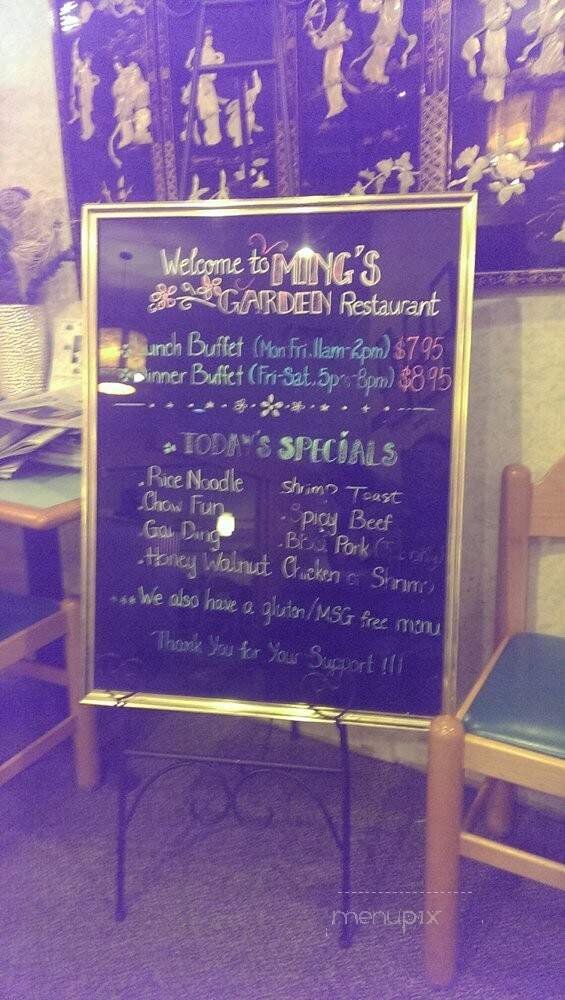 Welcome to MING'S
GARDEN Restaurant
Lunch Buffet (Mon-Fri. 11am-2pm) $7.95
Dinner Buffet (Fri-Sat. 5pm-8pm) $8.95
TODAY'S SPECIALS
Rice Noodle Shrimp Toast
Chow Fun Spicy Beef
Gai Ding BBQ Pork
Honey Walnut Chicken or Shrimp
***We also have a gluten/MSG free menu
Thank You for Your Support !!!
menupix